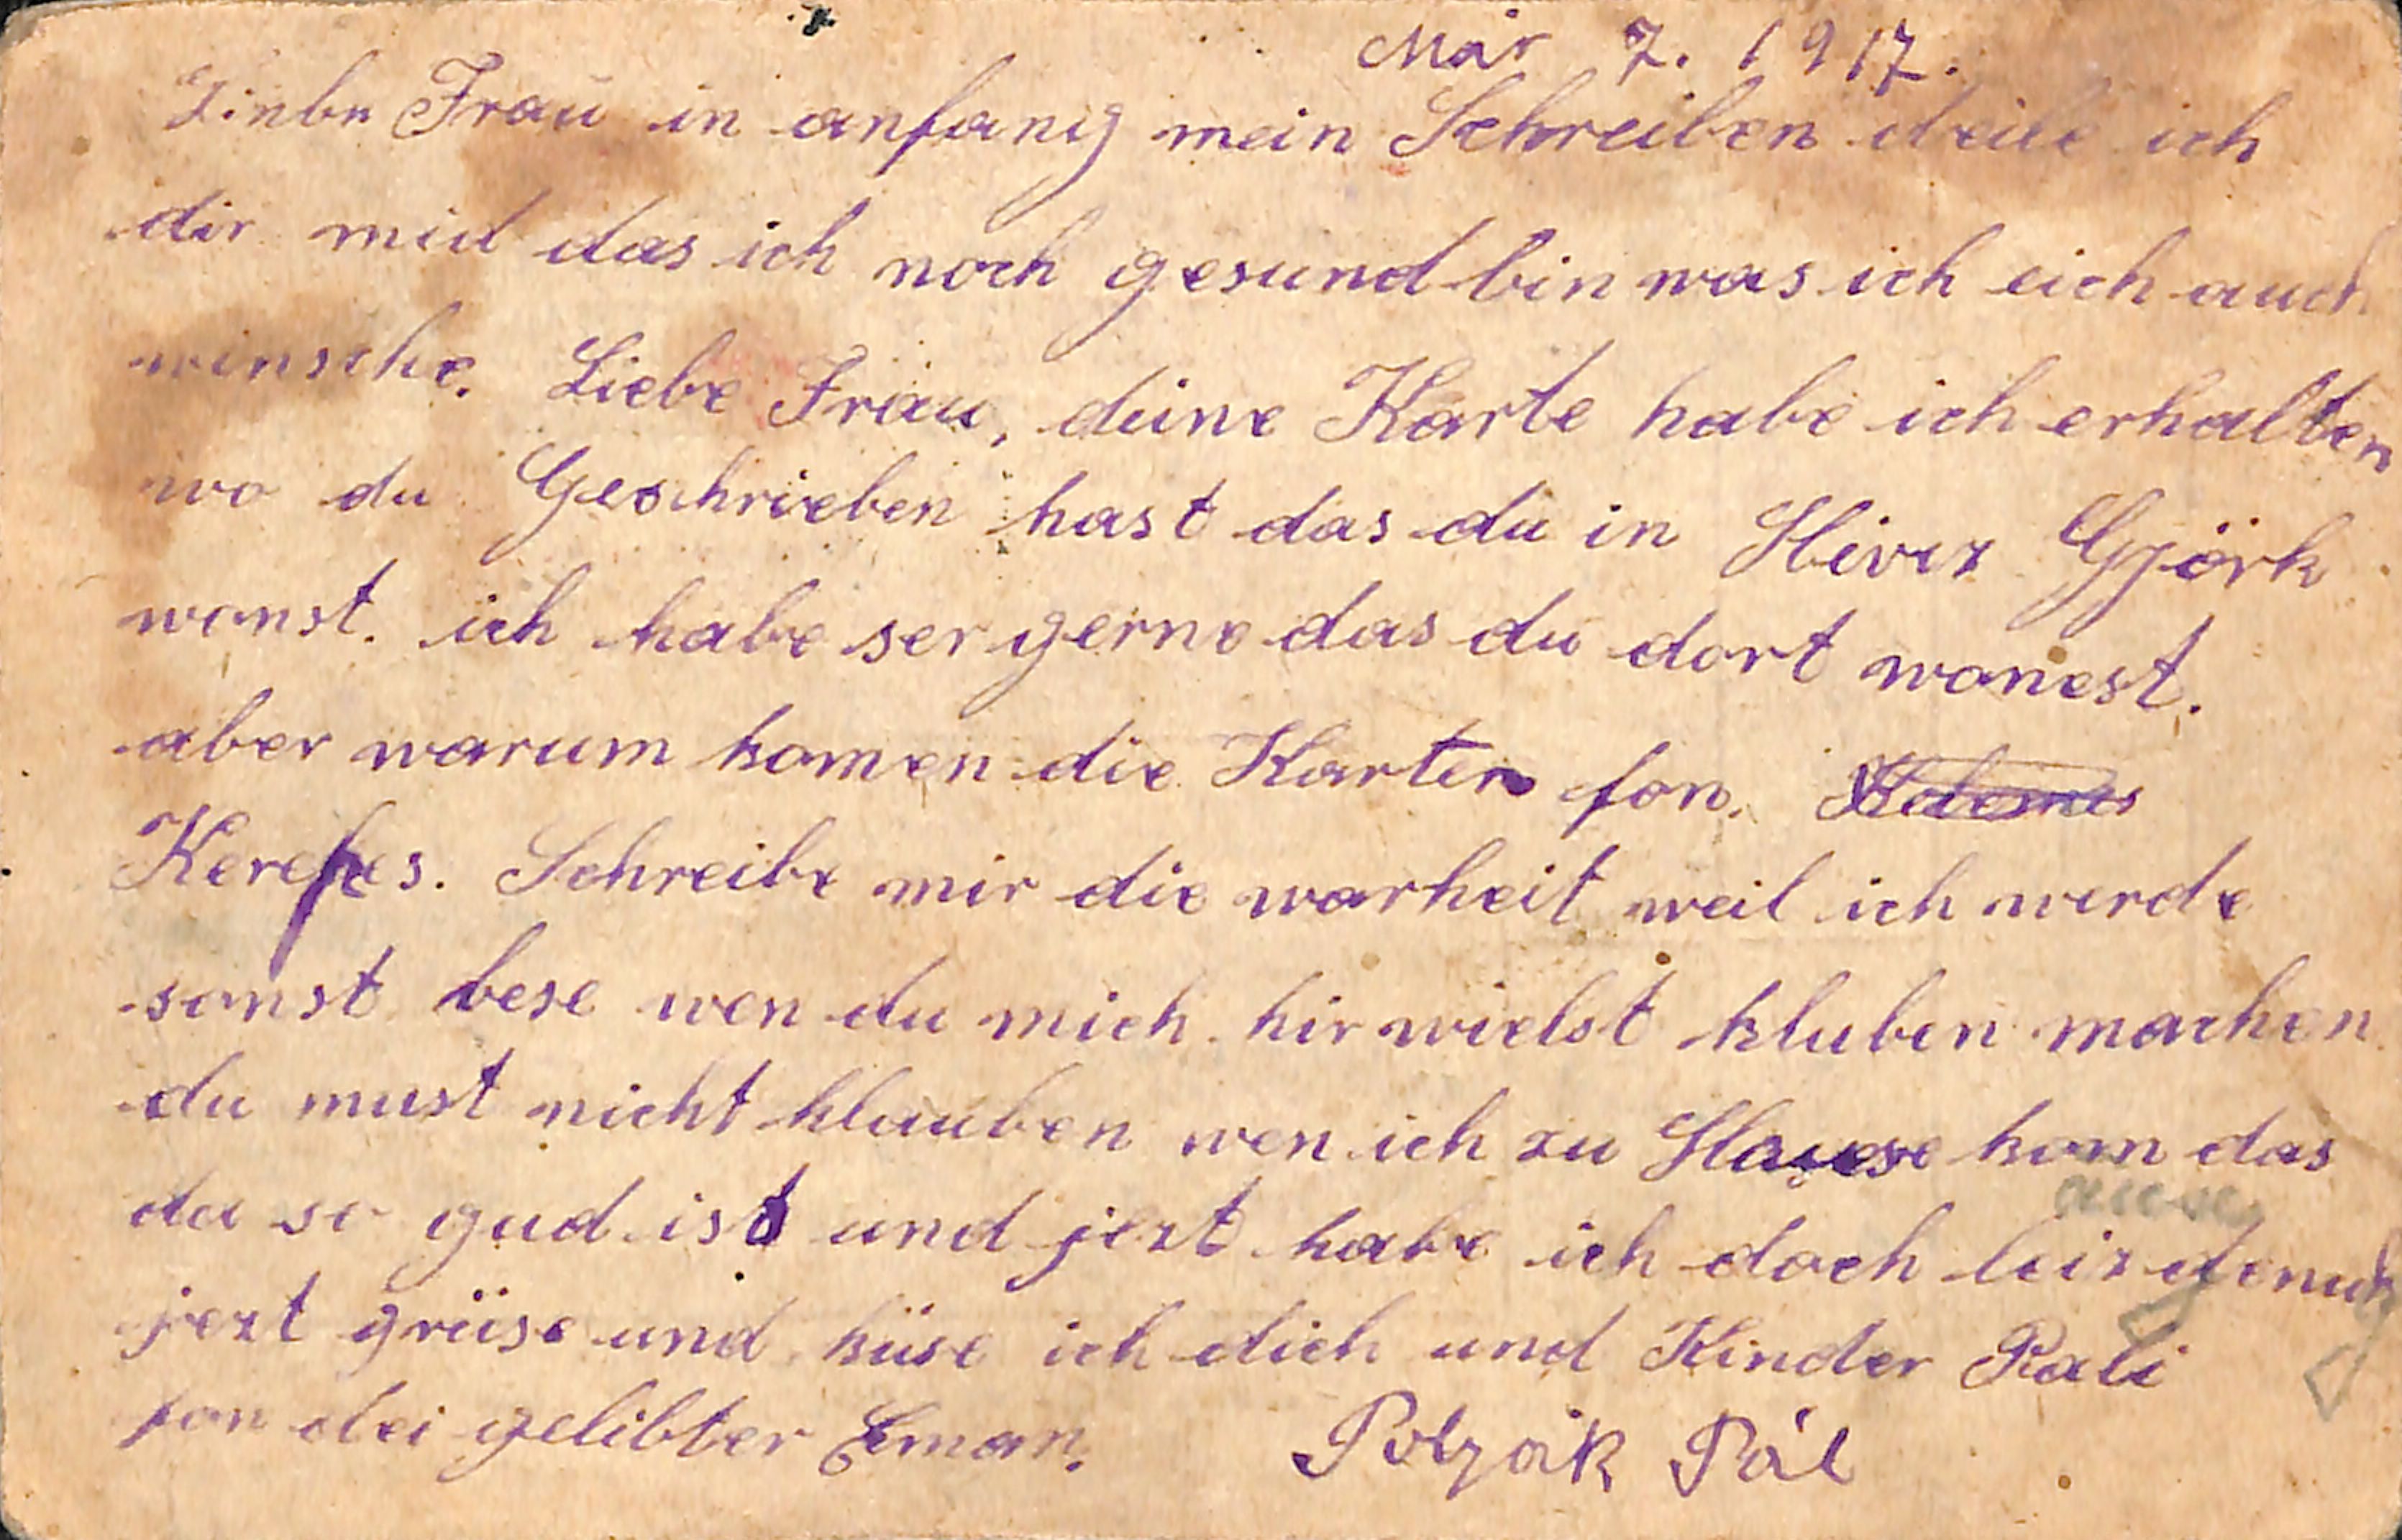 Mär 7. 1917.
Liebe Frau in anfanig mein Schreiben deile ich
dir mid das ich noch gesund bin was ich eich auch
winsche. Liebe Frau, deine Karte habe ich erhalten
wo du Geschrieben hast das du in Hivis Györk
wonst. ich habe ser gerne das du dort wonest.
aber warum komen die Karten fon.
Kerepes. Schreibe mir die warheit weil ich werde
sonst bese wen du mich hir wielst kluben machen
du must nicht klauben wen ich zu Hause kom das
da so gud ist und jezt habe ich doch leiz genuch
jezt grüse und küse ich dich und Kinder Rali
fon dei gelibter Eman. Polyák Pál